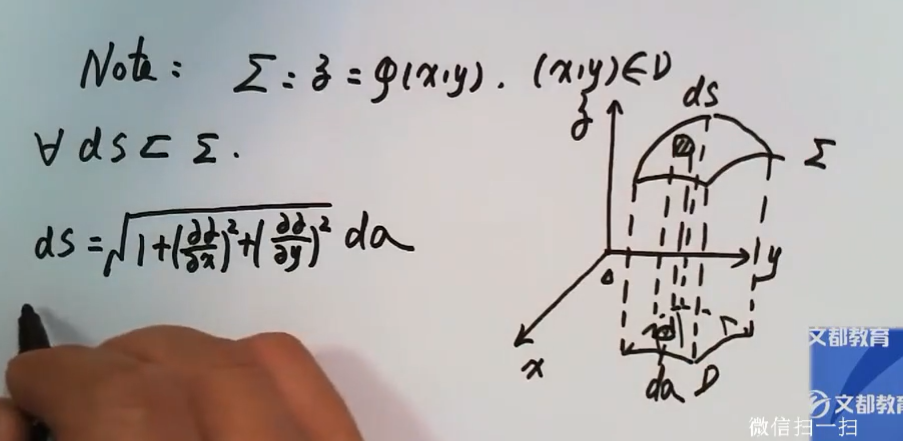 Note: Σ: z = φ(x,y). (x,y)∈D
∀ ds ⊂ Σ.
ds = √(1+(∂z/∂x)²+(∂z/∂y)²) da
z
ds
Σ
0
y
x
da D
文都教育
文都教育
微信扫一扫